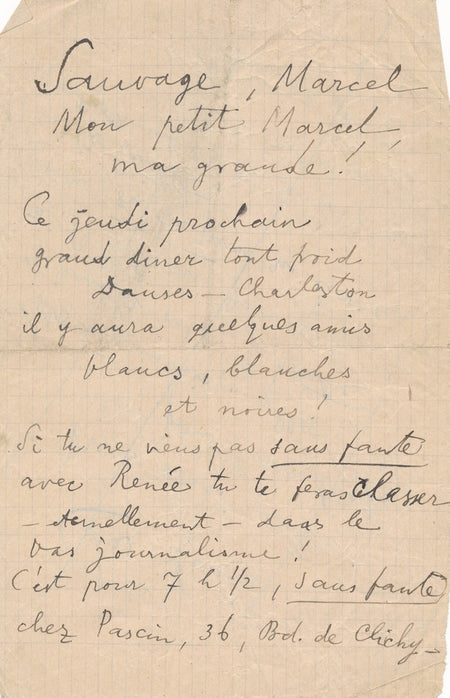 Sauvage, Marcel
Mon petit Marcel,
ma grande !
Ce jeudi prochain
grand diner tout froid
Danses - Charleston
il y aura quelques amis
blancs, blanches
et noires !
Si tu ne viens pas sans faute
avec Renée tu te feras classer
- éternellement - dans le
bas journalisme !
C'est pour 7 h 1/2, sans faute
chez Pascin, 36, Bd. de Clichy -